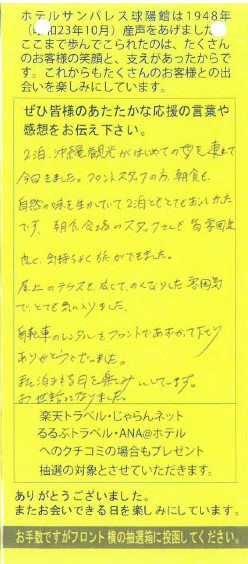 ホテルサンパレス球陽館は1948年
(昭和23年10月）産声をあげました
ここまで歩んでこられたのは、たくさん
のお客様の笑顔と、支えがあったからで
す。これからもたくさんのお客様との出
会いを楽しみにしています。
ぜひ皆様のあたたかな応援の言葉や
感想をお伝え下さい。
2泊、沖縄観光がはじめての
今日きました。フロントスタッフの方、朝食も、
自然の味を生かしていて2泊ともとてもおいしかった
です。朝食会場のスタッフさんも雰囲気
良く、気持ちよく旅ができました。
屋上のテラスも、広くて、のんびりした雰囲気
で、とても気に入りました、
自転車のレンタルもフロントであずかって下さり
ありがとうございました。
また泊まれる日を楽しみにしています。
お世話になりました。
楽天トラベル・じゃらんネット
るるぶトラベル・ANA@ホテル
へのクチコミの場合もプレゼント
抽選の対象とさせていただきます。
ありがとうございました。
またお会いできる日を楽しみにしています。
お手数ですがフロント横の抽選箱に投函してください。